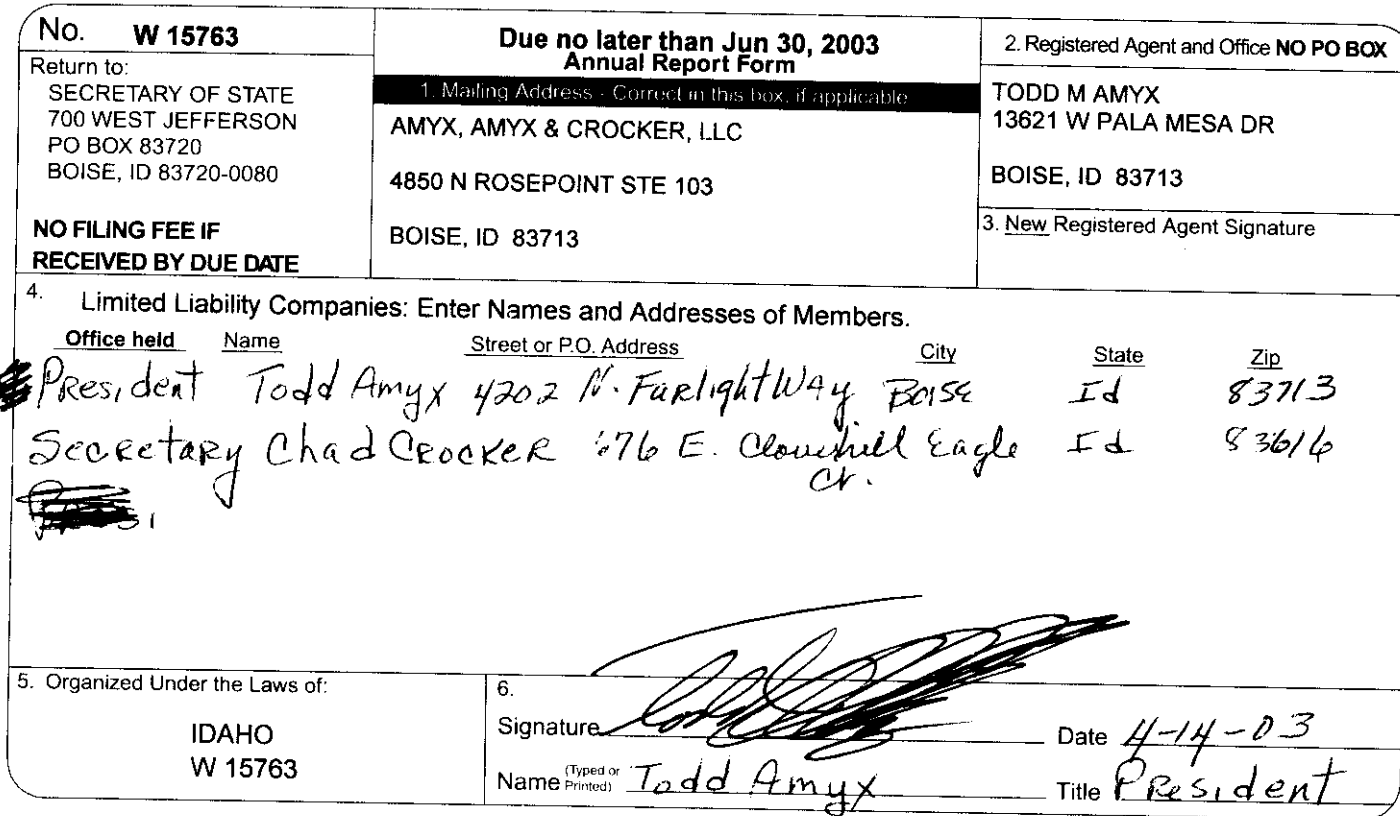 No. W 15763
Return to:
SECRETARY OF STATE
700 WEST JEFFERSON
PO BOX 83720
BOISE, ID 83720-0080
NO FILING FEE IF
RECEIVED BY DUE DATE
Due no later than Jun 30, 2003
Annual Report Form
1. Mailing Address - Correct in this box, if applicable
AMYX, AMYX & CROCKER, LLC
4850 N ROSEPOINT STE 103
BOISE, ID 83713
2. Registered Agent and Office NO PO BOX
TODD M AMYX
13621 W PALA MESA DR
BOISE, ID 83713
3. New Registered Agent Signature
4. Limited Liability Companies: Enter Names and Addresses of Members.
Office held Name Street or P.O. Address City State Zip
President Todd Amyx 4202 N. Farlight Way Boise Id 83713
Secretary Chad Crocker 676 E. Eagle Id 83616
Ct.
5. Organized Under the Laws of:
IDAHO
W 15763
6.
Signature Date 4-14-03
Name (Typed or Printed) Todd Amyx Title President